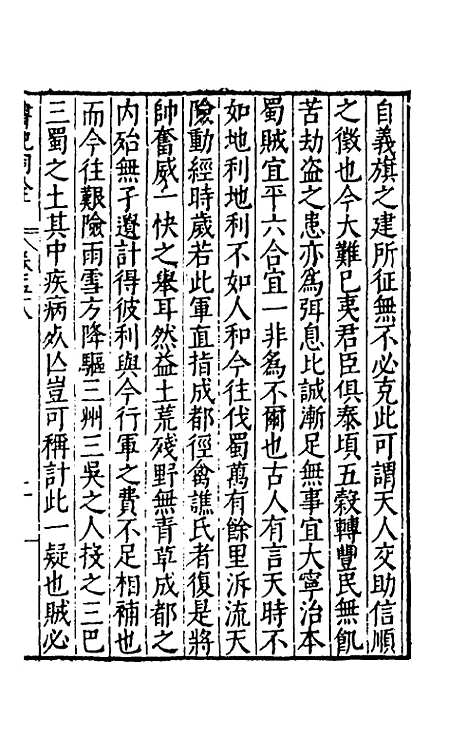 自義旗之建所征無不必克此可謂天人交助信順
之徵也今大難已夷君臣俱泰頃五穀轉豐民無飢
苦劫盗之患亦為弭息比誠漸足無事宜大寧治本
蜀賊宜平六合宜一非為不爾也古人有言天時不
如地利地利不如人和今往伐蜀萬有餘里泝流天
險動經時歲若此軍直指成都徑禽譙氏者復是將
帥奮威一快之舉耳然益土荒殘野無青草成都之
内殆無孑遺計得彼利與今行軍之費不足相補也
而今往艱險雨雪方降驅三州三吳之人投之三巴
三蜀之土其中疾病死亾豈可稱計此一疑也賊必